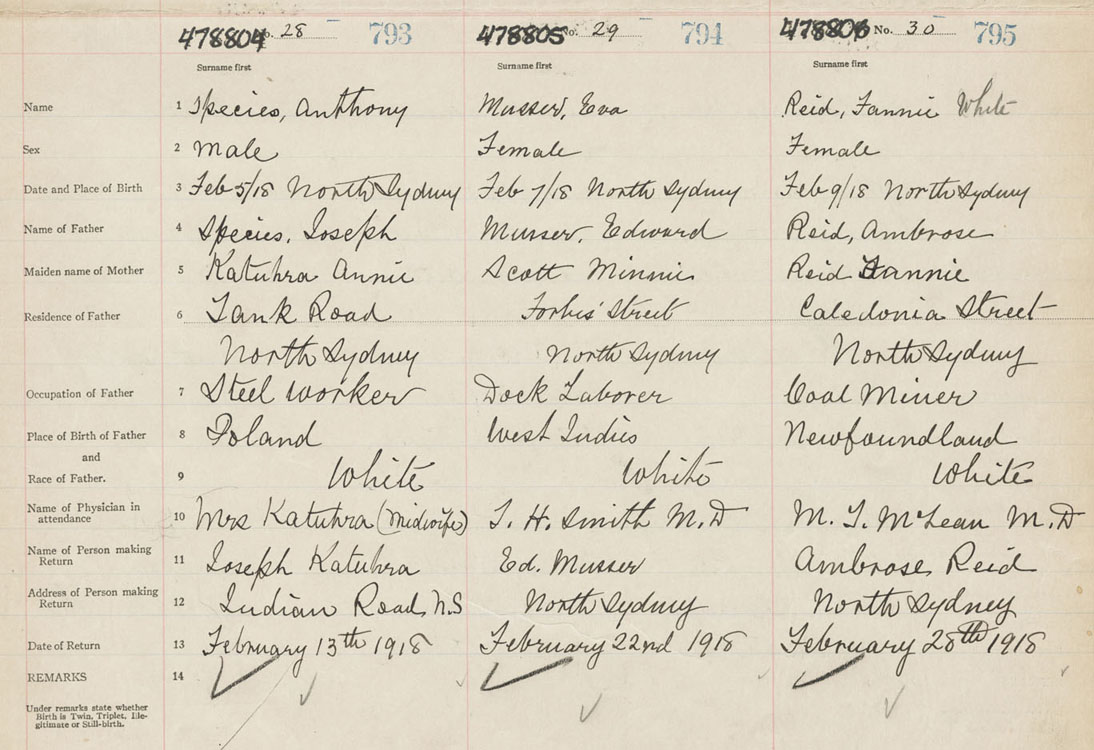 478804 No. 28 793 478805 No. 29 794 478806 No. 30 795
Surname first Surname first Surname first
Name 1 Species, Anthony Musser, Eva Reid, Fannie White
Sex 2 Male Female Female
Date and Place of Birth 3 Feb 5/18 North Sydney Feb 7/18 North Sydney Feb 9/18 North Sydney
Name of Father 4 Species, Joseph Musser, Edward Reid, Ambrose
Maiden name of Mother 5 Katuhra Annie Scott Minnie Reid Fannie
Residence of Father 6 Tank Road Forbis' Street Caledonia Street
North Sydney North Sydney North Sydney
Occupation of Father 7 Steel worker Dock Laborer Coal Miner
Place of Birth of Father 8 Poland West Indies Newfoundland
and
Race of Father. 9 White White White
Name of Physician in
attendance 10 Mrs Katuhra (Midwife) T. H. Smith M.D M. T. McLean M.D
Name of Person making
Return 11 Joseph Katuhra Ed. Musser Ambrose Reid
Address of Person making
Return 12 Indian Road N.S North Sydney North Sydney
Date of Return 13 February 13th 1918 February 22nd 1918 February 28th 1918
REMARKS 14
Under remarks state whether
Birth is Twin, Triplet, Ille-
gitimate or Still-birth.